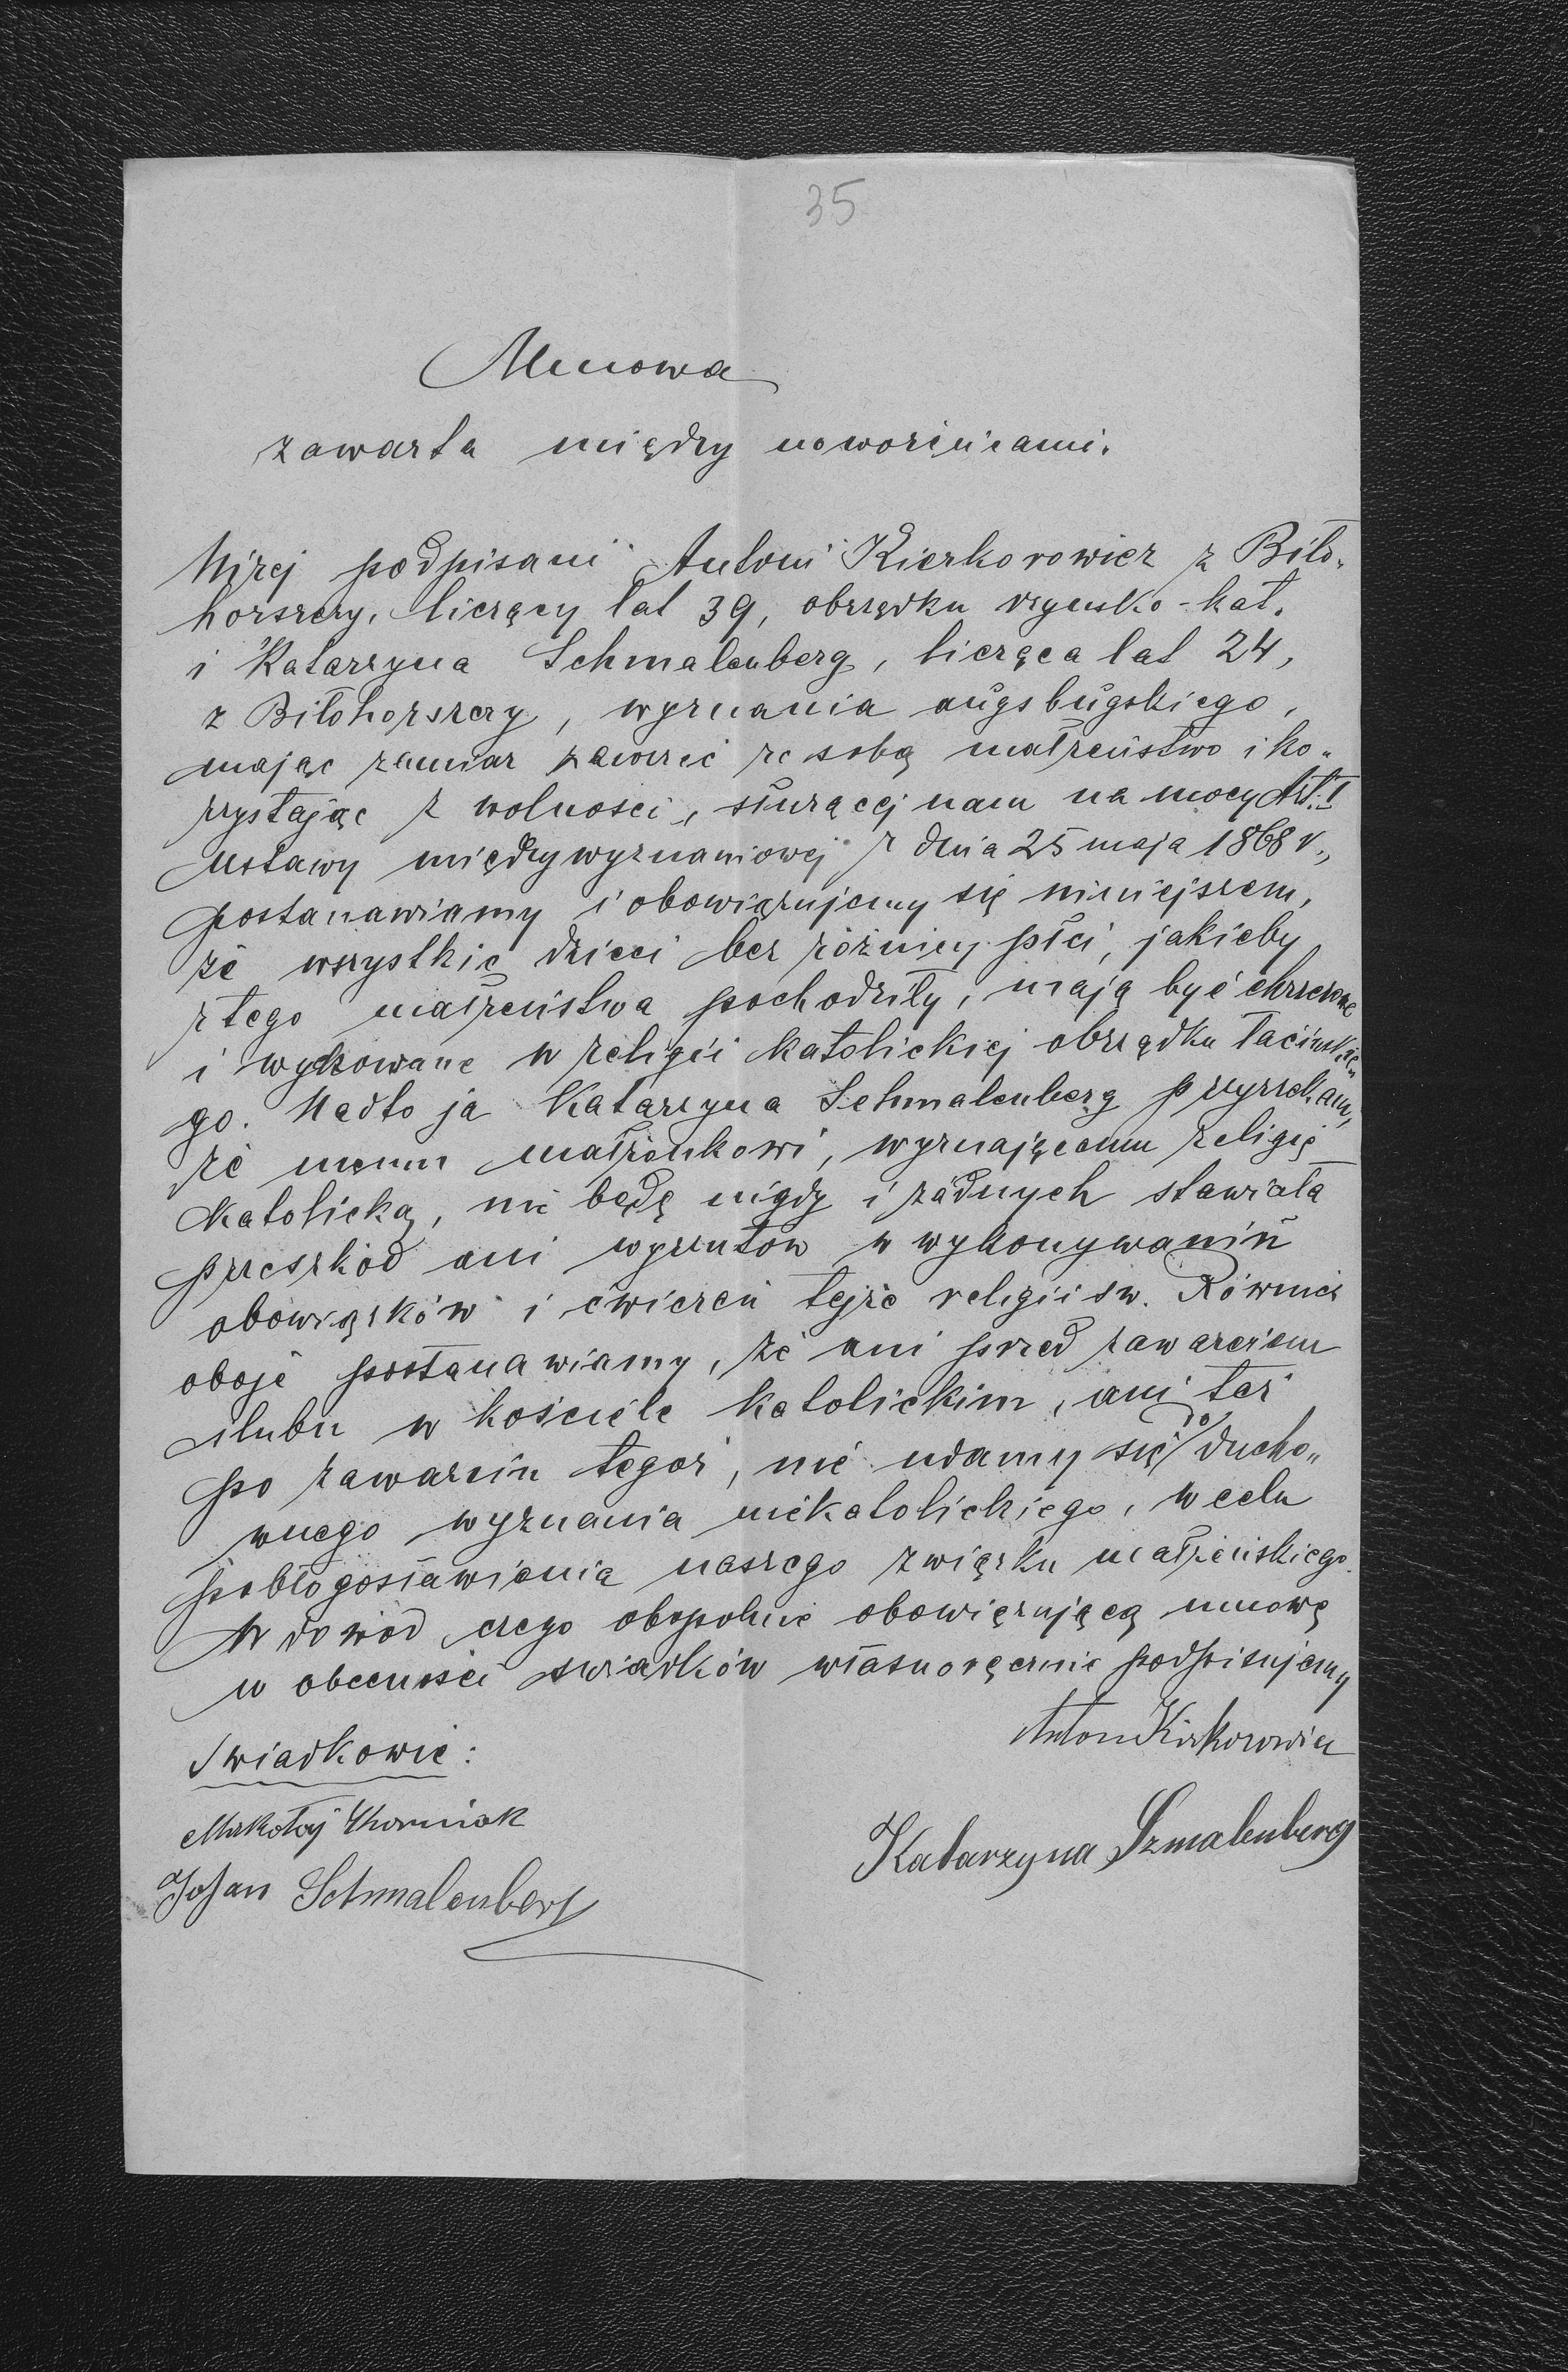 35
Umowa
zawarta między nowożeńcami.
Niżej podpisani Antoni Kierkorowicz z Biło-
horszczy, liczący lat 39, obrządku rzymsko-kat.
i Katarzyna Schmalenberg, licząca lat 24,
z Biłohorszczy, wyznania augsbugskiego,
mając zamiar zawrzeć ze sobą małżeństwo i ko-
rzystając z wolności, służącej nam na mocy Art. I
ustawy międzywyznaniowej z dnia 25 maja 1868 r.,
postanawiamy i obowiązujemy się niniejszem,
że wszystkie dzieci bez różnicy płci, jakieby
z tego małżeństwa pochodziły, mają być chrzczone
i wychowane w religii katolickiej obrządku łacińskie-
go. Nadto ja Katarzyna Schmalenberg przyrzekam,
że memu małżonkowi, wyznającemu religię
katolicką, nie będę nigdy i żadnych stawiała
przeszkód ani wyrzutów w wykonywaniu
obowiązków i ćwiczeń tejże religii św. Również
oboje postanawiamy, że ani przed zawarciem
ślubu w kościele katolickim, ani też
po zawarciu tegoż, nie udamy się do ducho-
wnego wyznania niekatolickiego, w celu
pobłogosławienia naszego związku małżeńskiego.
W dowód czego obopólnie obowiązującą umowę
w obecności świadków własnoręcznie podpisujemy
Świadkowie:
Anton Kirkorowicz
Mikołaj
Katarzyna Szmalenberg
Johan Schmalenberg